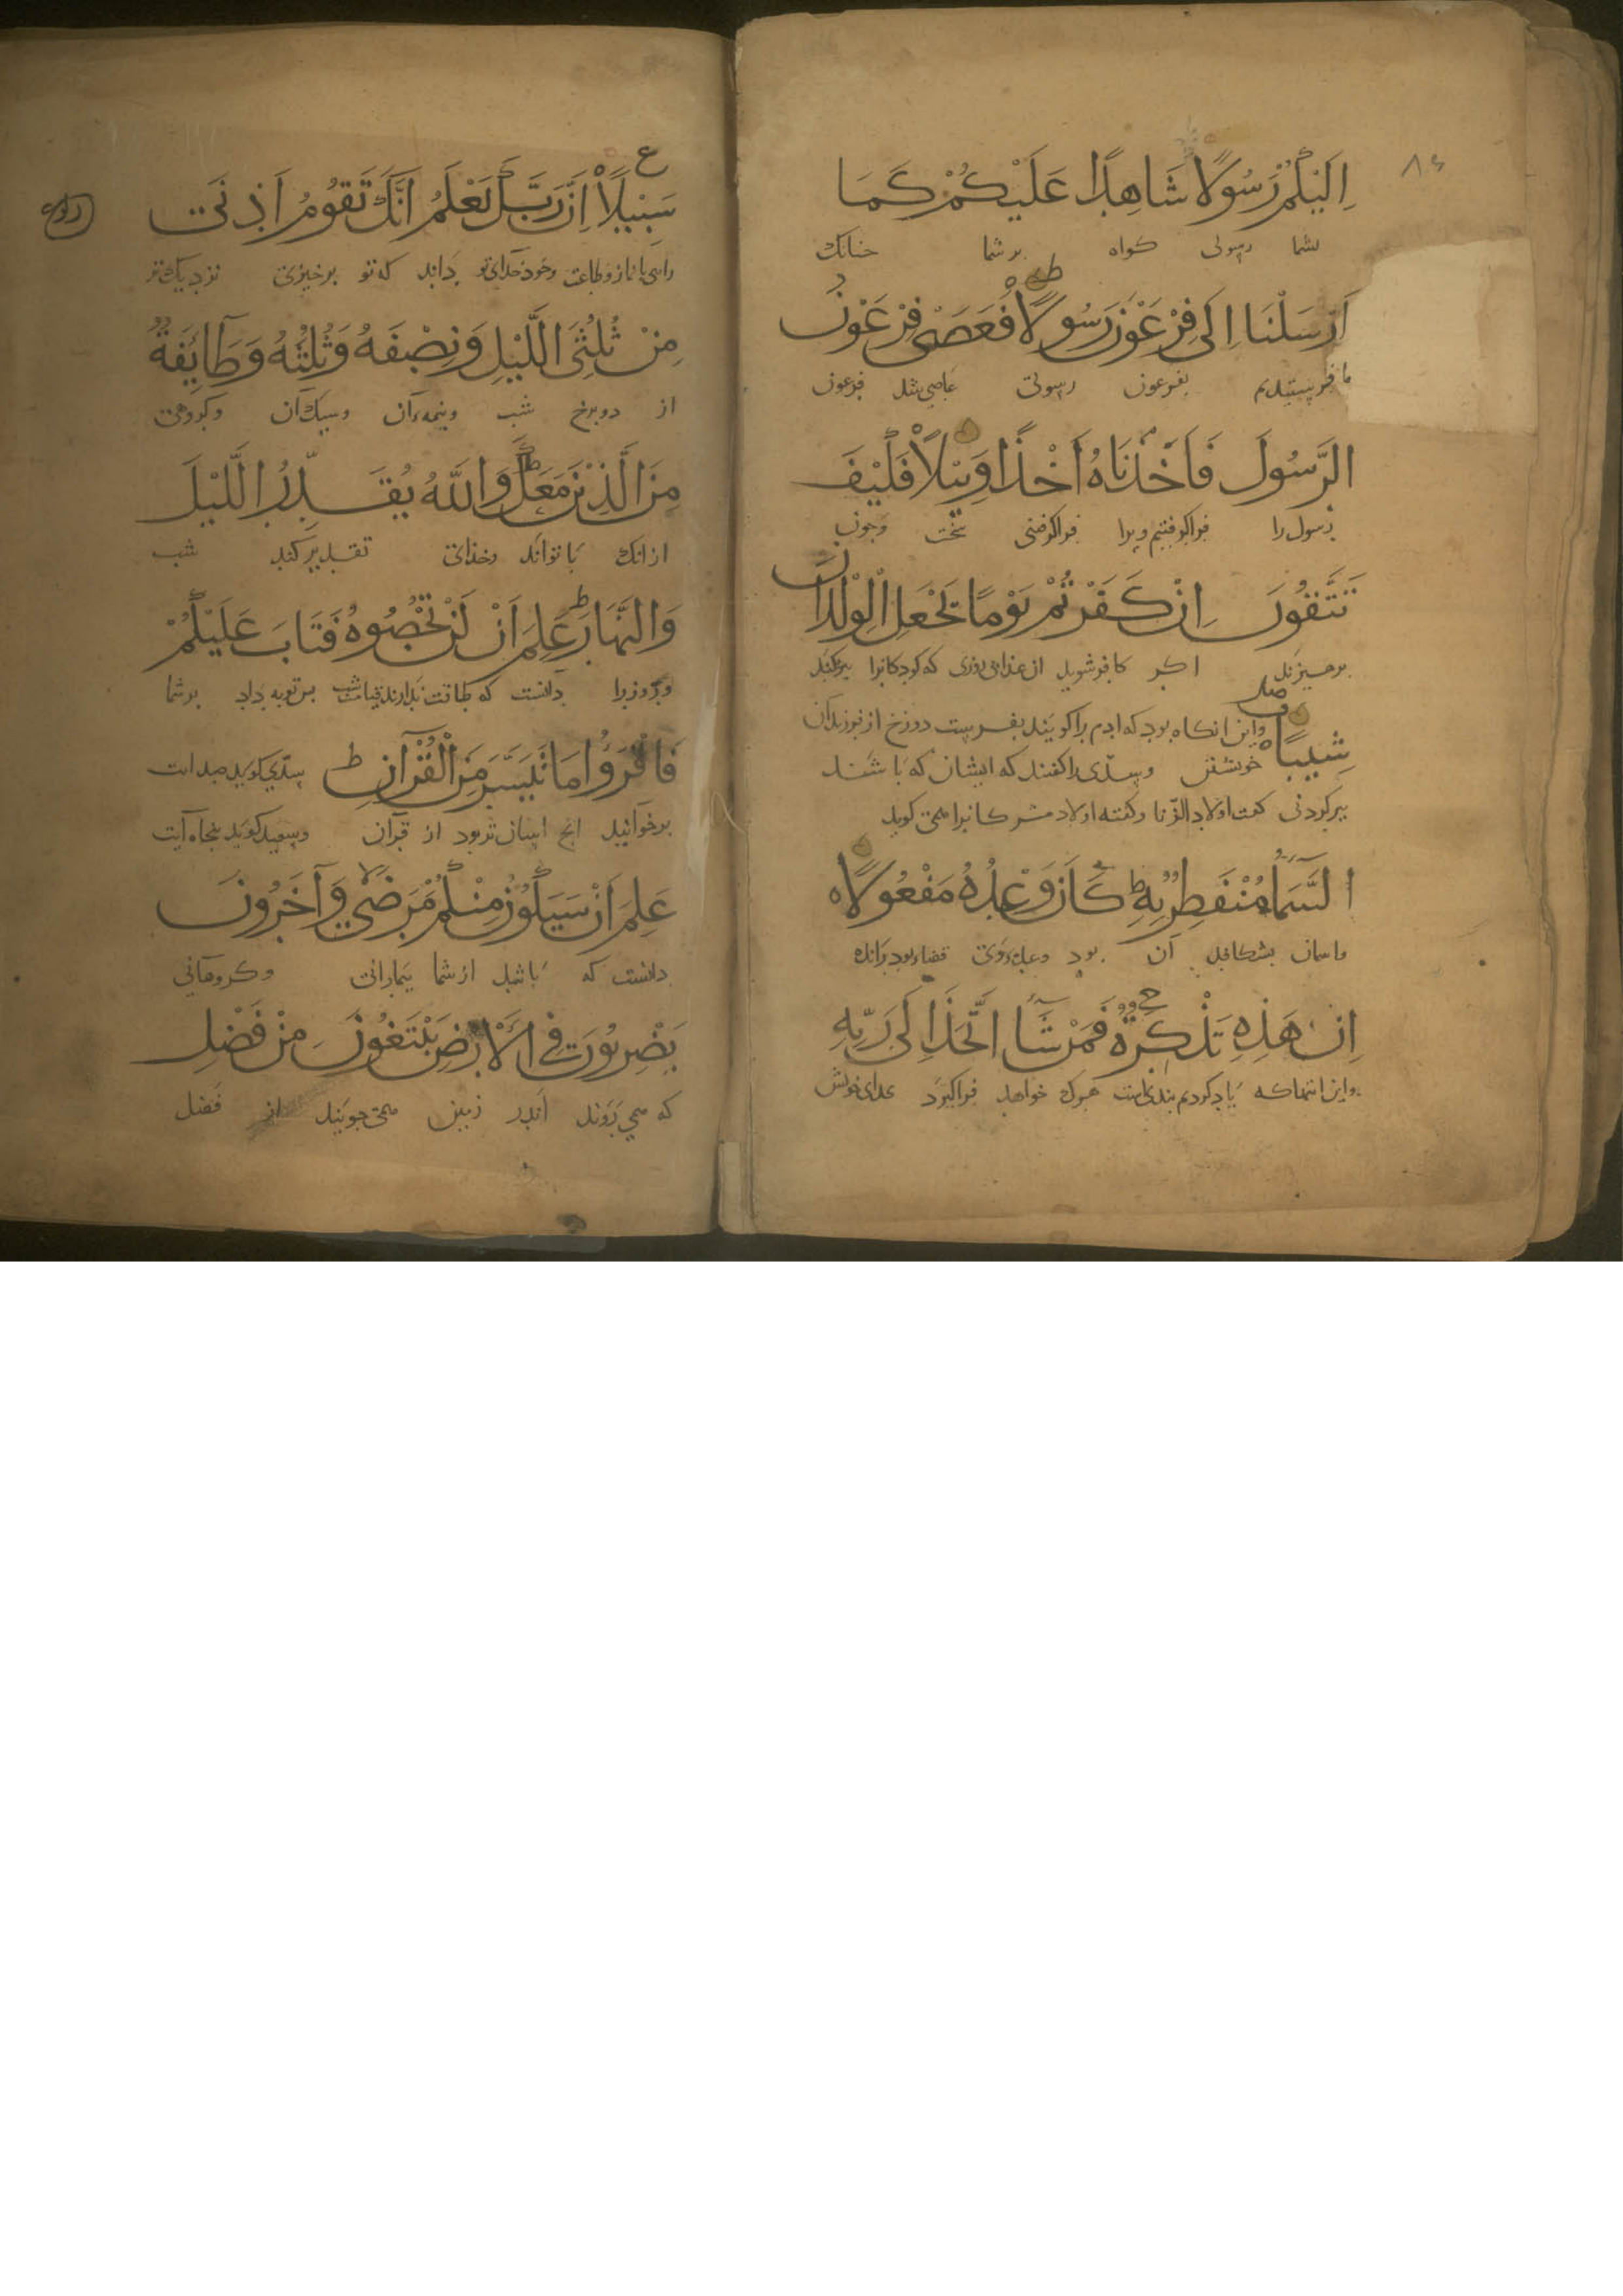 ٨٤
اِلَيْكُمْ رَسُولًا شَاهِدًا عَلَيْكُمْ كَمَا
بشما رسولی کواه بر شما جنانک
اَرْسَلْنَا اِلَى فِرْعَوْنَ رَسُولًا فَعَصَى فِرْعَوْنُ
ما فرستیدیم بفرعون رسولی عاصی شد فرعون
الرَّسُولَ فَاَخَذْنَاهُ اَخْذًا وَبِيْلًا فَكَيْفَ
رسول را فراکرفتیم ویرا فراکرفتنی سخت وجون
تَتَّقُونَ اِنْ كَفَرْتُمْ يَوْمًا يَجْعَلُ الْوِلْدَانَ
اکر کافر شوید از عذاب روزی که کودکانرا بیر کند
شِيْبًا
واین انکاه بود که ادم را کویند بفرست دوزخ از فرزندان
خویشتن وسدی را کفتند که ایشان که باشند
اولاد الزنا وکفته اولاد مشرکانرا می کوید
السَّمَاءُ مُنْفَطِرٌ بِهِ ط كَانَ وَعْدُهُ مَفْعُولًا
بشکافد آن بود
اِنَّ هَذِهِ تَذْكِرَةٌ فَمَنْ شَاءَ اتَّخَذَ اِلَى رَبِّهِ
یاد کردیم هرک خواهد فراکیرد خدای خویش
ع
سَبِيْلًا اِنَّ رَبَّكَ يَعْلَمُ اَنَّكَ تَقُومُ اَدْنَى
راهی با نماز وطاعت وخود خدای تو داند که تو برخیزی نزدیک تر
رکوع
مِنْ ثُلُثَيِ اللَّيْلِ وَنِصْفَهُ وَثُلُثَهُ وَطَائِفَةٌ
از دو برخ شب ونیمه آن وسیک آن وکروهی
مِنَ الَّذِيْنَ مَعَكَ ط وَاللَّهُ يُقَدِّرُ اللَّيْلَ
ازانک با تواند وخدای تقدیر کند شب
وَالنَّهَارَ ط عَلِمَ اَنْ لَنْ تُحْصُوهُ فَتَابَ عَلَيْكُمْ
وروز را دانست که طاقت ندارند توبه داد بر شما
فَاقْرَؤُا مَا تَيَسَّرَ مِنَ الْقُرْآنِ ط سدی کوید صد ایت
برخوانید انج اسان تر بود از قرآن وسعید کوید بنجاه آیت
عَلِمَ اَنْ سَيَكُونُ مِنْكُمْ مَرْضَى لا وَآخَرُونَ
دانست که باشد از شما بیمارانی وکروهانی
يَضْرِبُونَ فِي الْاَرْضِ يَبْتَغُونَ مِنْ فَضْلِ
که می روند اندر زمین می جویند از فضل